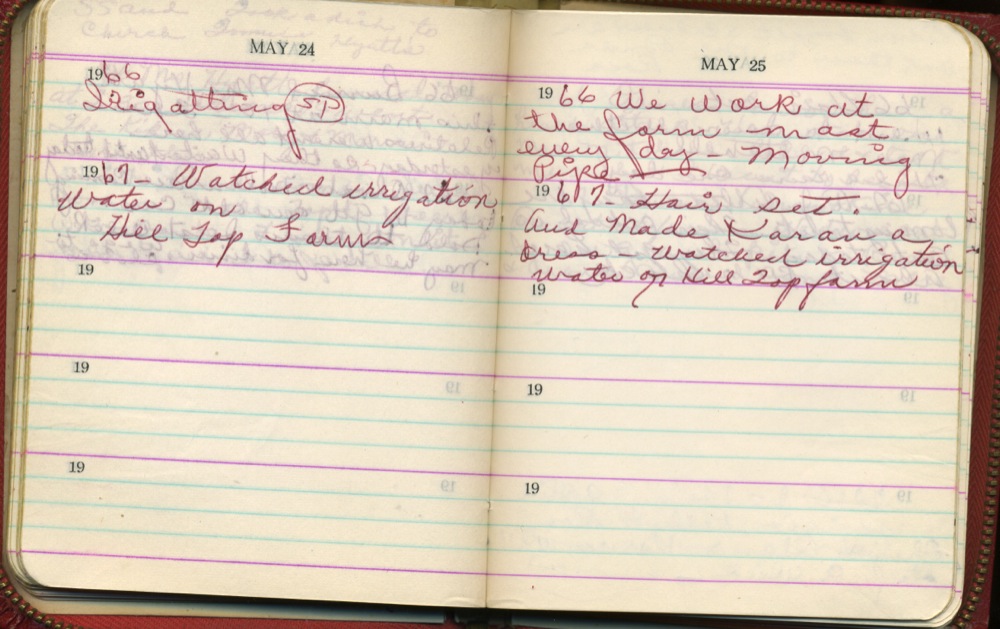 Church
MAY 24
1966
Irigatting SP
1967- Watched irrgation
Water on
Hill Top Farms
19
19
19
MAY 25
1966 We work at
the farm most
every day - Moving
Pipe
1967- Hair set.
And Made Karan a
Dress - Watched irrigation
Water on Hill Top farm
19
19
19